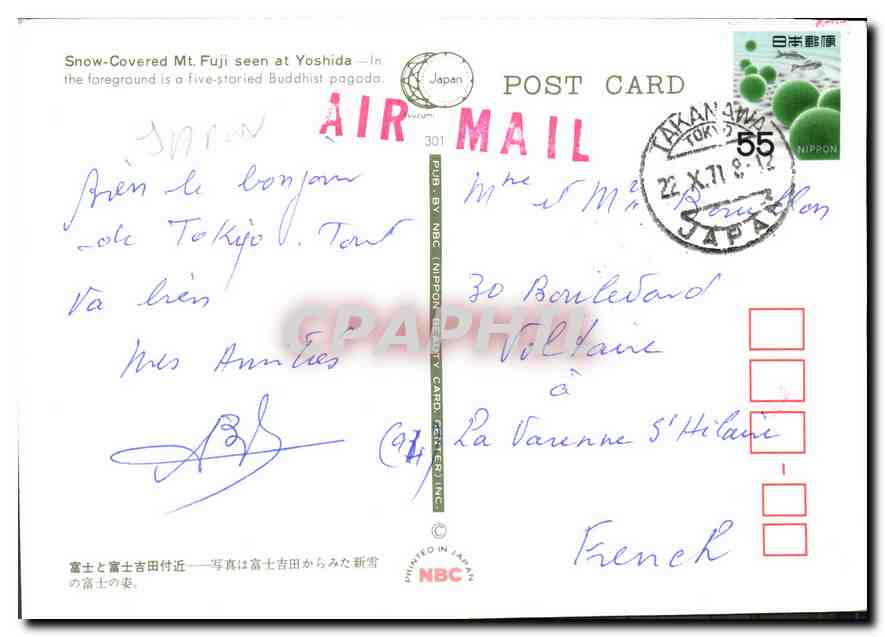 Snow-Covered Mt. Fuji seen at Yoshida — In
the foreground is a five-storied Buddhist pagoda.
Japan
POST CARD
日本郵便
55
NIPPON
AIR MAIL
301
TAKANAWA
TOKYO
22.X.71 8-12
JAPAN
JAPON
Bien le bonjour
de Tokyo. Tout
va bien
mes Amitiés
Mme et Mr
30 Boulevard
Voltaire
à
(94) La Varenne St Hilaire
French
CPAPHIL
PUB. BY NBC (NIPPON BEAUTY CARD. CENTER) INC.
©
PRINTED IN JAPAN
NBC
富士と富士吉田付近——写真は富士吉田からみた新雪
の富士の姿。